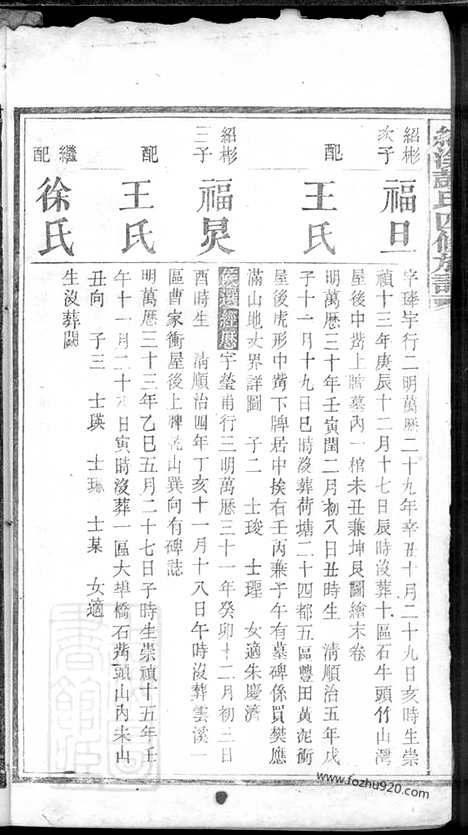 氏四修族譜
紹彬次子 福旦
字 行二明萬曆二十九年辛丑十月二十九日亥時生崇
禎十三年庚辰十二月十七日辰時沒葬十區石牛頭竹山灣
屋後中嘴上牌墓內一棺未丑兼坤艮圖繪末卷
配 王氏
明萬曆三十年壬寅閏二月初八日丑時生 清順治五年戊
子十一月十九日巳時沒葬荷塘二十四都五區豐田黃泥衝
屋後虎形中嘴下牌居中挨右壬丙兼子午有墓碑係買樊應
滿山地 界詳圖 子二 士琁 士瑆 女適朱慶濟
紹彬三子 福炅
候選經歷字瑩甫行三明萬曆三十一年癸卯十二月初三日
酉時生 清順治四年丁亥十一月十八日午時沒葬雲溪一
區曹家衝屋後上牌 山巽向有碑誌
配 王氏
明萬曆三十三年乙巳五月二十七日子時生崇禎十五年壬
午十一月二十 日寅時沒葬一區大埠橋石嘴頭山內未山
丑向 子三 士瑛 士 士某 女適
繼配 徐氏
生沒葬闕
www.fozhu920.com